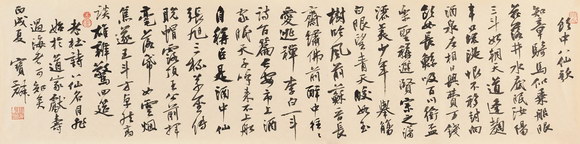 飲中八仙歌
知章騎馬似乘船眼
花落井水底眠汝陽
三斗始朝天道逢麴
車口流涎恨不移封向
酒泉左相日興費萬錢
飲如長鯨吸百川銜盃
樂聖稱避賢宗之瀟
灑美少年舉觴
白眼望青天皎如玉
樹臨風前蘇晉長
齋繡佛前醉中往往
愛逃禪李白一斗
詩百篇長安市上酒
家眠天子呼來不上船
自稱臣是酒中仙
張旭三杯草聖傳
脫帽露頂王公前揮
毫落紙如雲煙
焦遂五斗方卓然高
談雄辯驚四筵
老杜詩八仙名目非
始於道家獻壽
過海可知矣
丙戌夏寶